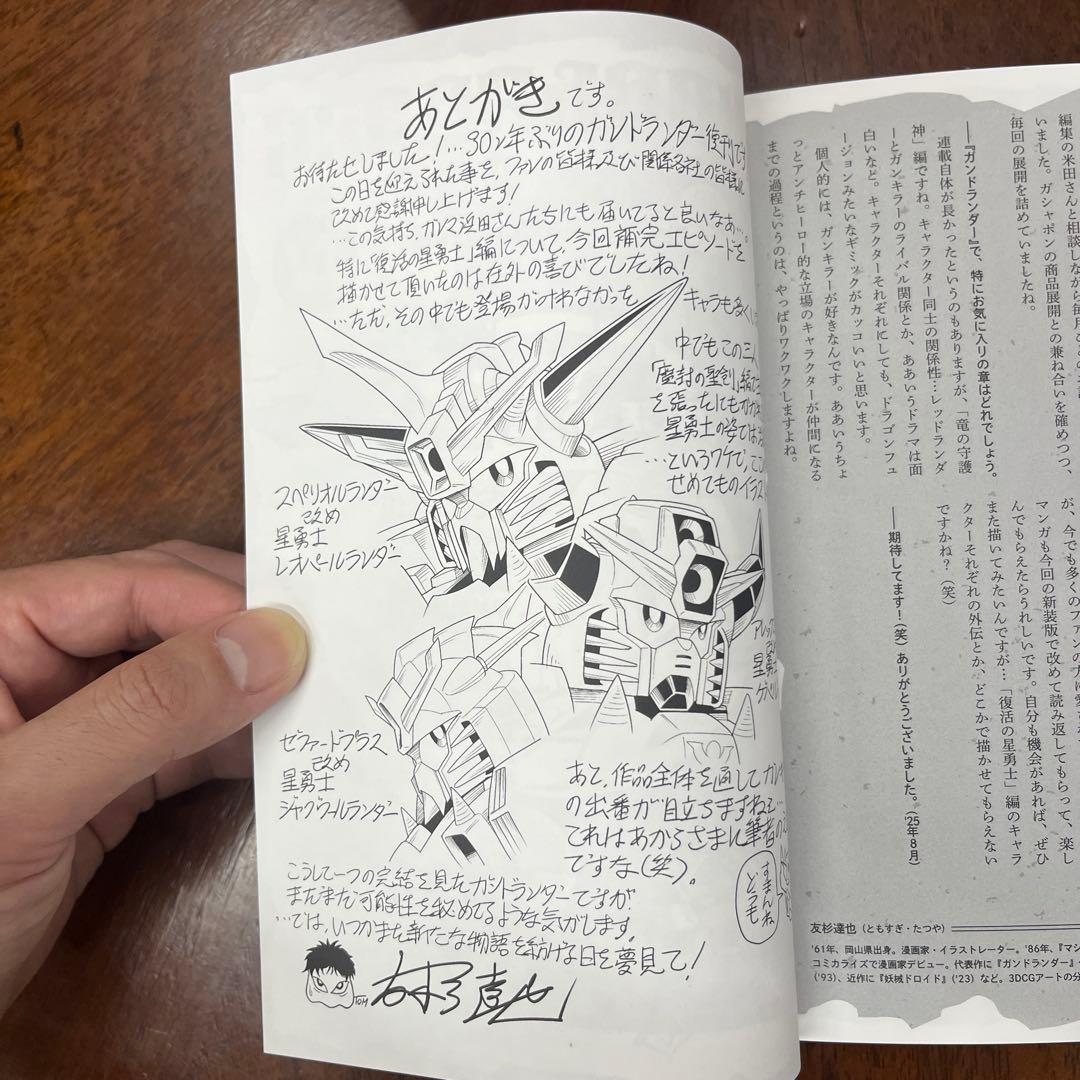 あとがきです。
お待たせしました!…30ン年ぶりのガンドランダー復刊です
この日を迎えられた事を、ファンの皆様及び関係各社の皆様に
改めて感謝申し上げます!
…この気持ち、ガンマ浜田さんたちにも届いてると良いなぁ…。
特に「復活の星勇士」編について、今回補完エピソードを
描かせて頂いたのは在外の喜びでしたね!
…ただ、その中でも登場が叶わなかった
キャラも多く
中でもこの三人
「魔封の聖剣」編で
を張ったにもかかわ
星勇士の姿では
…というワケで、ここ
せめてものイラス
スペリオルランダー
改め
星勇士
レオパールランダー
アレックス
改め
星勇士
ゲパル
ゼファードプラス
改め
星勇士
ジャグワールランダー
あと、作品全体を通してガン
の出番が目立ちますねェ…
これはあからさまに筆者の
ですな(笑)。
すまんね
どうも
こうして一つの完結を見たガンドランダーですが
まだまだ可能性を秘めてるような気がします。
…では、いつかまた新たな物語を紡げる日を夢見て!
友杉達也
TOM
編集の米田さんと相談しながら毎月
いました。ガシャポンの商品展開との兼ね合いを確めつつ、
毎回の展開を詰めていましたね。
──『ガンドランダー』で、特にお気に入りの章はどれでしょう。
連載自体が長かったというのもありますが、「竜の守護
神」編ですね。キャラクター同士の関係性…レッドランダ
ーとガンキラーのライバル関係とか、ああいうドラマは面
白いなと。キャラクターそれぞれにしても、ドラゴンフュ
ージョンみたいなギミックがカッコいいと思います。
個人的には、ガンキラーが好きなんです。ああいうちょ
っとアンチヒーロー的な立場のキャラクターが仲間になる
までの過程というのは、やっぱりワクワクしますよね。
が、今でも多くのファンの方に愛
マンガも今回の新装版で改めて読み返してもらって、楽し
んでもらえたらうれしいです。自分も機会があれば、ぜひ
また描いてみたいんですが…「復活の星勇士」編のキャラ
クターそれぞれの外伝とか、どこかで描かせてもらえない
ですかね?(笑)
──期待してます!(笑)ありがとうございました。('25年8月)
友杉達也(ともすぎ・たつや)
'61年、岡山県出身。漫画家・イラストレーター。'86年、『マシ
コミカライズで漫画家デビュー。代表作に『ガンドランダー』
('93)、近作に『妖械ドロイド』('23)など。3DCGアートの分